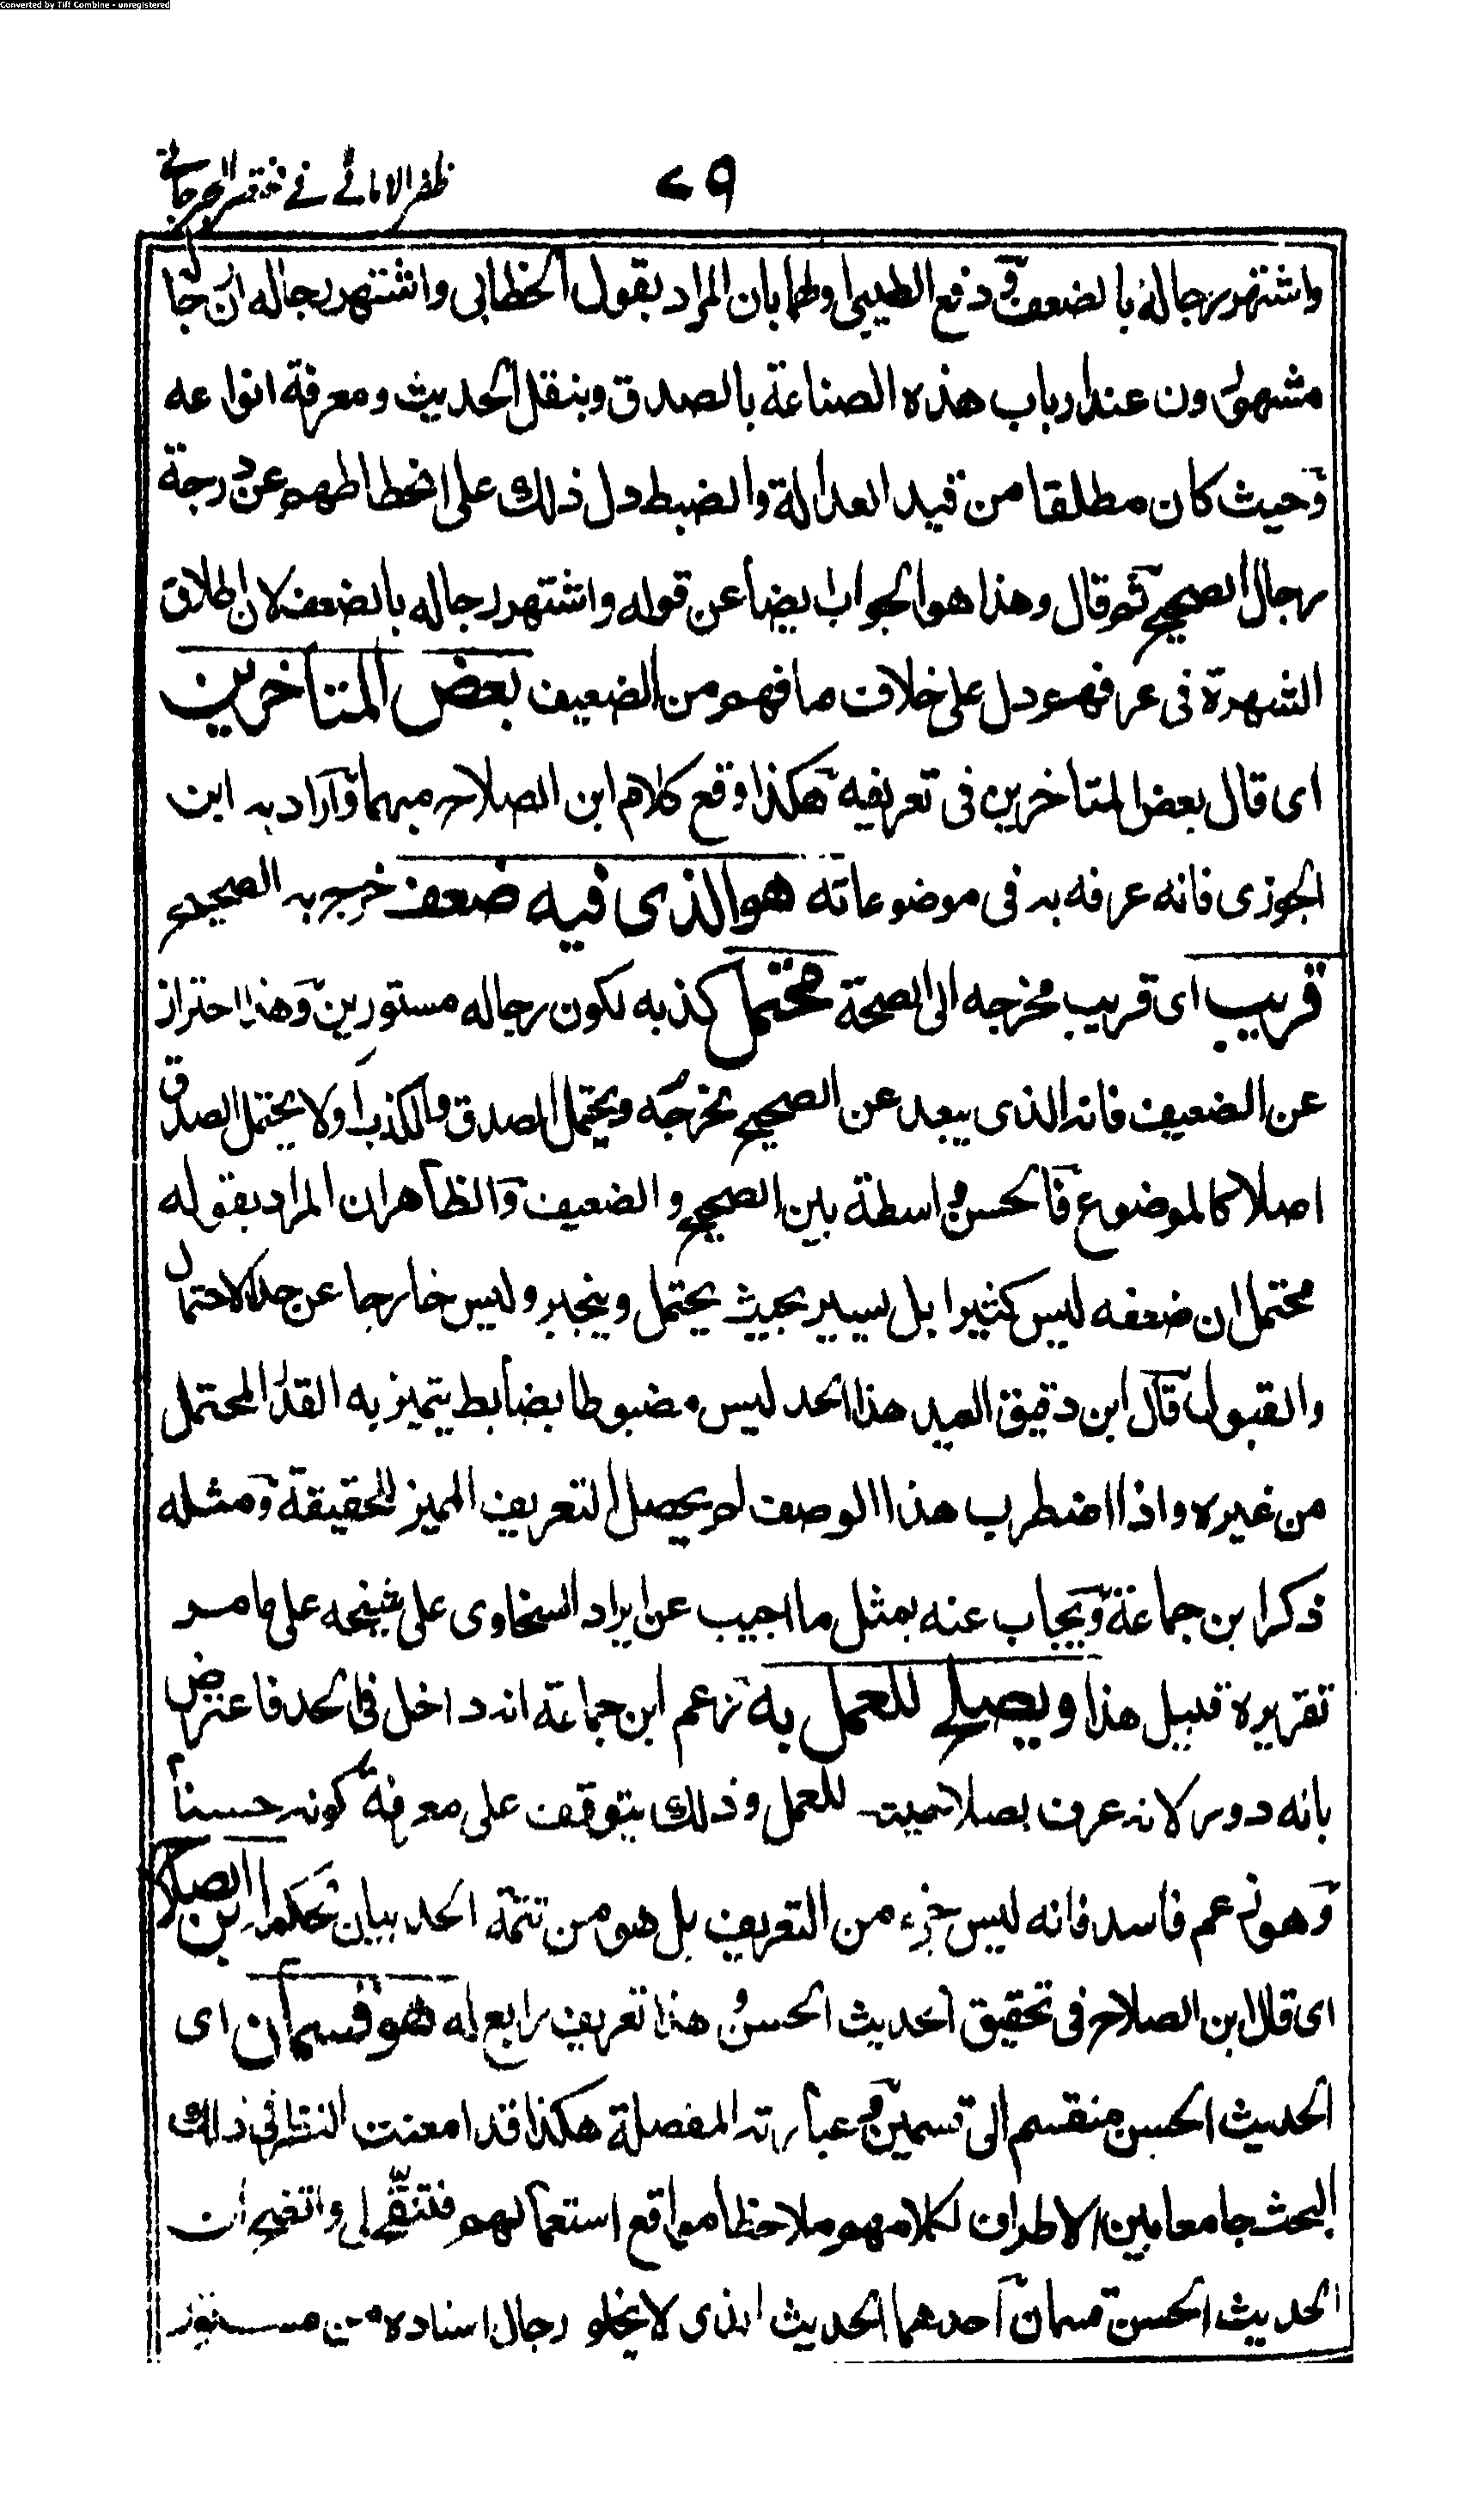 Converted by Tiff Combine - unregistered
ظفر الامانے فے مختصر الجرجانے
٧٩
واشتهر رجاله بالضعف ودفع الطيبى اولهما بان المراد بقول الخطابى واشتهر رجاله ان رجاله
مشهورون عند ارباب هذه الصناعة بالصدق وبنقل الحديث ومعرفة انواعه
وحيث كان مطلقا من قيد العدالة والضبط دل ذلك على انحطاطهم عن درجة
رجال الصحيح ثم قال وهذا هو الجواب ايضا عن قوله واشتهر رجاله بالضعف لان اطلاق
الشهرة فى عرفهم دل على خلاف ما فهم من الضعيف بعض المتاخرين
اى قال بعض المتاخرين فى تعريفه هكذا وقع كلام ابن الصلاح مبهما واراد به ابن
الجوزى فانه عرفه به فى موضوعاته هو الذى فيه ضعف خرج به الصحيح
قريب اى قريب مخرجه الى الصحة محتمل كذبه لكون رجاله مستورين وهذا احتراز
عن الضعيف فانه الذى يبعد عن الصحيح مخرجه ويحتمل الصدق والكذب اولا يحتمل الصدق
اصلا كالموضوع فالحسن واسطة بين الصحيح والضعيف والظاهر ان المراد بقوله
محتمل ان ضعفه ليس كثيرا بل يسير بحيث يحتمل وينجبر وليس خارجا عن حد الاحتمال
والقبول قال ابن دقيق العيد هذا الحد ليس مضبوطا بضابط يتميز به القدر المحتمل
من غيره واذا اضطرب هذا الوصف لم يحصل التعريف المميز للحقيقة ومثله
ذكر ابن جماعة ويجاب عنه بمثل ما اجيب عن ايراد السخاوى على شيخه على ما مر
تقريره قبيل هذا ويصلح للعمل به زعم ابن جماعة انه داخل فى الحد فاعترض
بانه دور لانه عرف بصلاحيته للعمل وذلك يتوقف على معرفة كونه حسنا
وهو زعم فاسد فانه ليس جزء من التعريف بل هو من تتمة الحد بيان لحكمه ابن الصلاح
اى قال ابن الصلاح فى تحقيق الحديث الحسن وهذا تعريف رابع له هو قسمان اى
الحديث الحسن منقسم الى قسمين وعبارته المفصلة هكذا قد امعنت النظر فى ذلك
البحث جامعا بين الاطراف لكلامهم ملاحظا مواقع استعمالهم فتنقح لى واتضح ان
الحديث الحسن قسمان احدهما الحديث الذى لا يخلو رجال اسناده من مستور